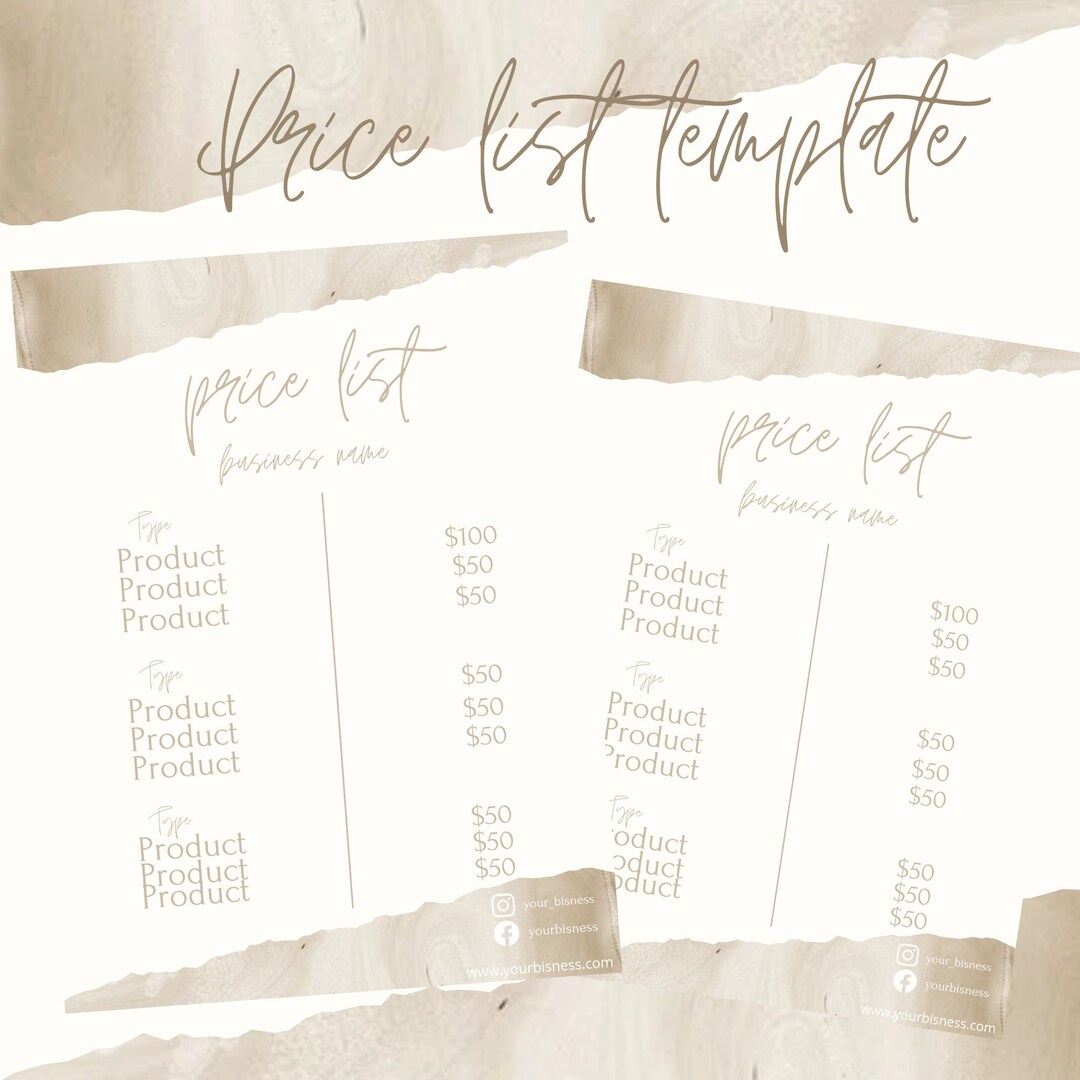 Price list template
price list
business name
Type
Product
Product
Product
$100
$50
$50
Type
Product
Product
Product
$50
$50
$50
Type
Product
Product
Product
$50
$50
$50
your_bisness
yourbisness
www.yourbisness.com
price list
business name
Type
Product
Product
Product
$100
$50
$50
Type
Product
Product
Product
$50
$50
$50
Type
oduct
oduct
oduct
$50
$50
$50
your_bisness
yourbisness
www.yourbisness.com